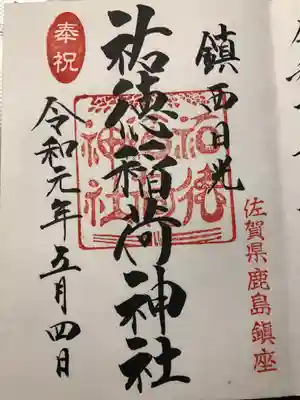 鎮西日光
佐賀県鹿島鎮座
奉祝
祐徳稲荷神社
祐徳稲荷神社
令和元年五月四日